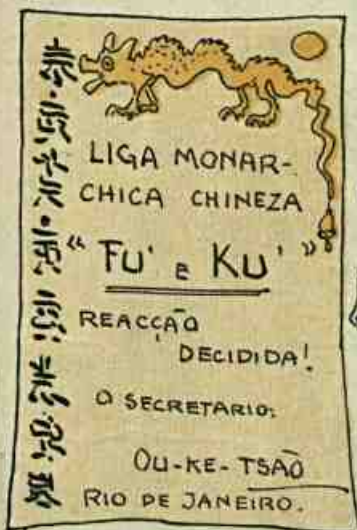 LIGA MONAR-
CHICA CHINEZA
"FU' E KU'"
REACÇÃO
DECIDIDA!
O SECRETARIO:
OU-KE-TSÃO
RIO DE JANEIRO.